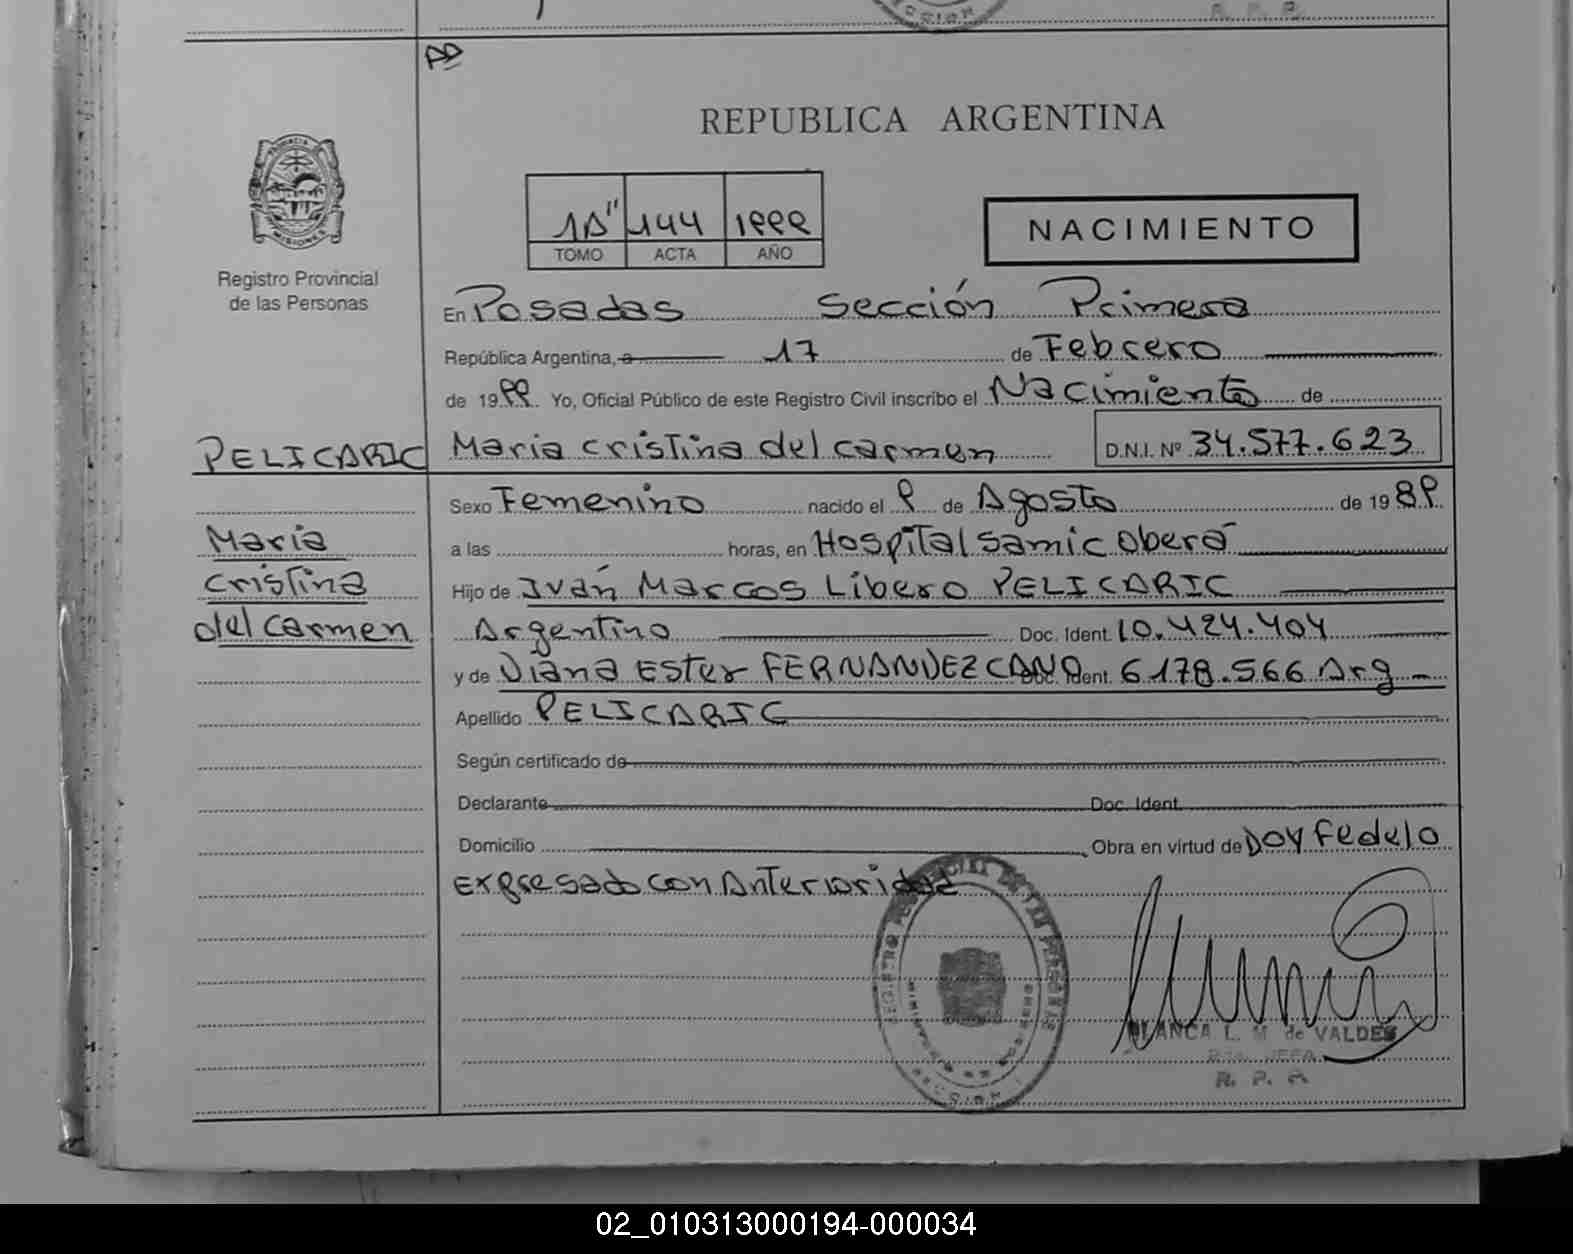 AD
REPUBLICA ARGENTINA
1A" 144 1999
TOMO ACTA AÑO
NACIMIENTO
Registro Provincial
de las Personas
En Posadas Sección Primera
República Argentina, a 17 de Febrero
de 1999. Yo, Oficial Público de este Registro Civil inscribo el Nacimiento de
PELICARIC Maria cristina del carmen D.N.I. Nº 34.577.623
Sexo Femenino nacido el 9 de Agosto de 1989
Maria
a las horas, en Hospital samic oberá
cristina
Hijo de Iván Marcos Libero PELICARIC
del carmen
Argentino Doc. Ident. 10.424.404
y de Diana Ester FERNANDEZ CANO Doc. Ident. 6178.566 Arg
Apellido PELICARIC
Según certificado de
Declarante Doc. Ident.
Domicilio Obra en virtud de Doy Fe de lo
Expresado con Anterioridad
BLANCA L. M de VALDES
JEFA
R. P. A
02_010313000194-000034